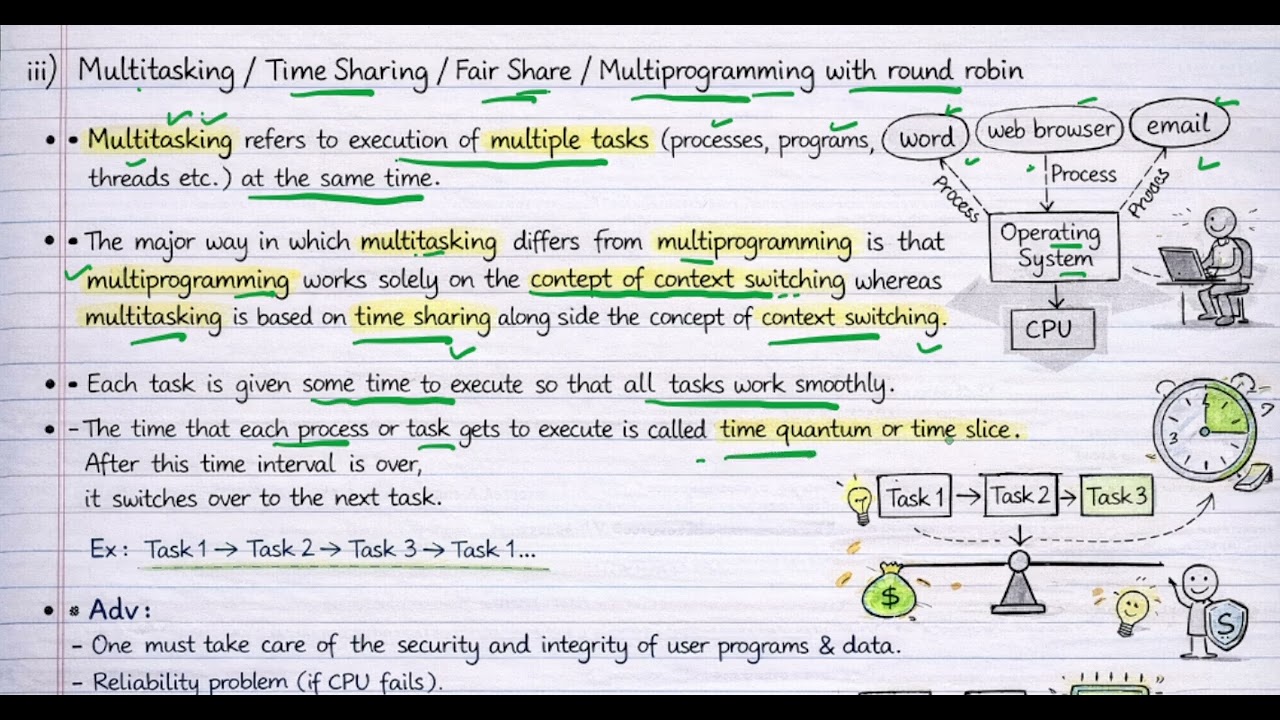 iii) Multitasking / Time Sharing / Fair Share / Multiprogramming with round robin
• - Multitasking refers to execution of multiple tasks (processes, programs,
threads etc.) at the same time.
word
web browser
email
Process
Process
Operating
System
CPU
• - The major way in which multitasking differs from multiprogramming is that
multiprogramming works solely on the contept of context switching whereas
multitasking is based on time sharing along side the concept of context switching.
• - Each task is given some time to execute so that all tasks work smoothly.
• - The time that each process or task gets to execute is called time quantum or time slice.
After this time interval is over,
it switches over to the next task.
3
Task 1 → Task 2 → Task 3
Ex: Task 1 → Task 2 → Task 3 → Task 1...
$
S
• * Adv:
- One must take care of the security and integrity of user programs & data.
- Reliability problem (if CPU fails).